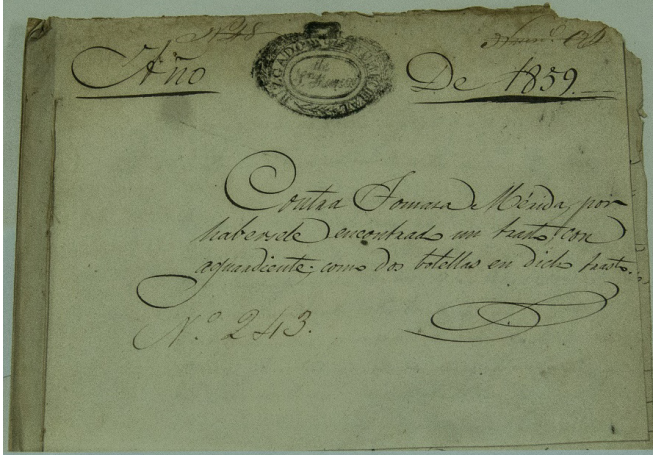 Nº 48
Año
JUZGADO
De 1859.
Contra Tomasa Mérida, por
habersele encontrado un trasto con
aguardiente, como dos botellas en dicho trasto.
Nº 243.